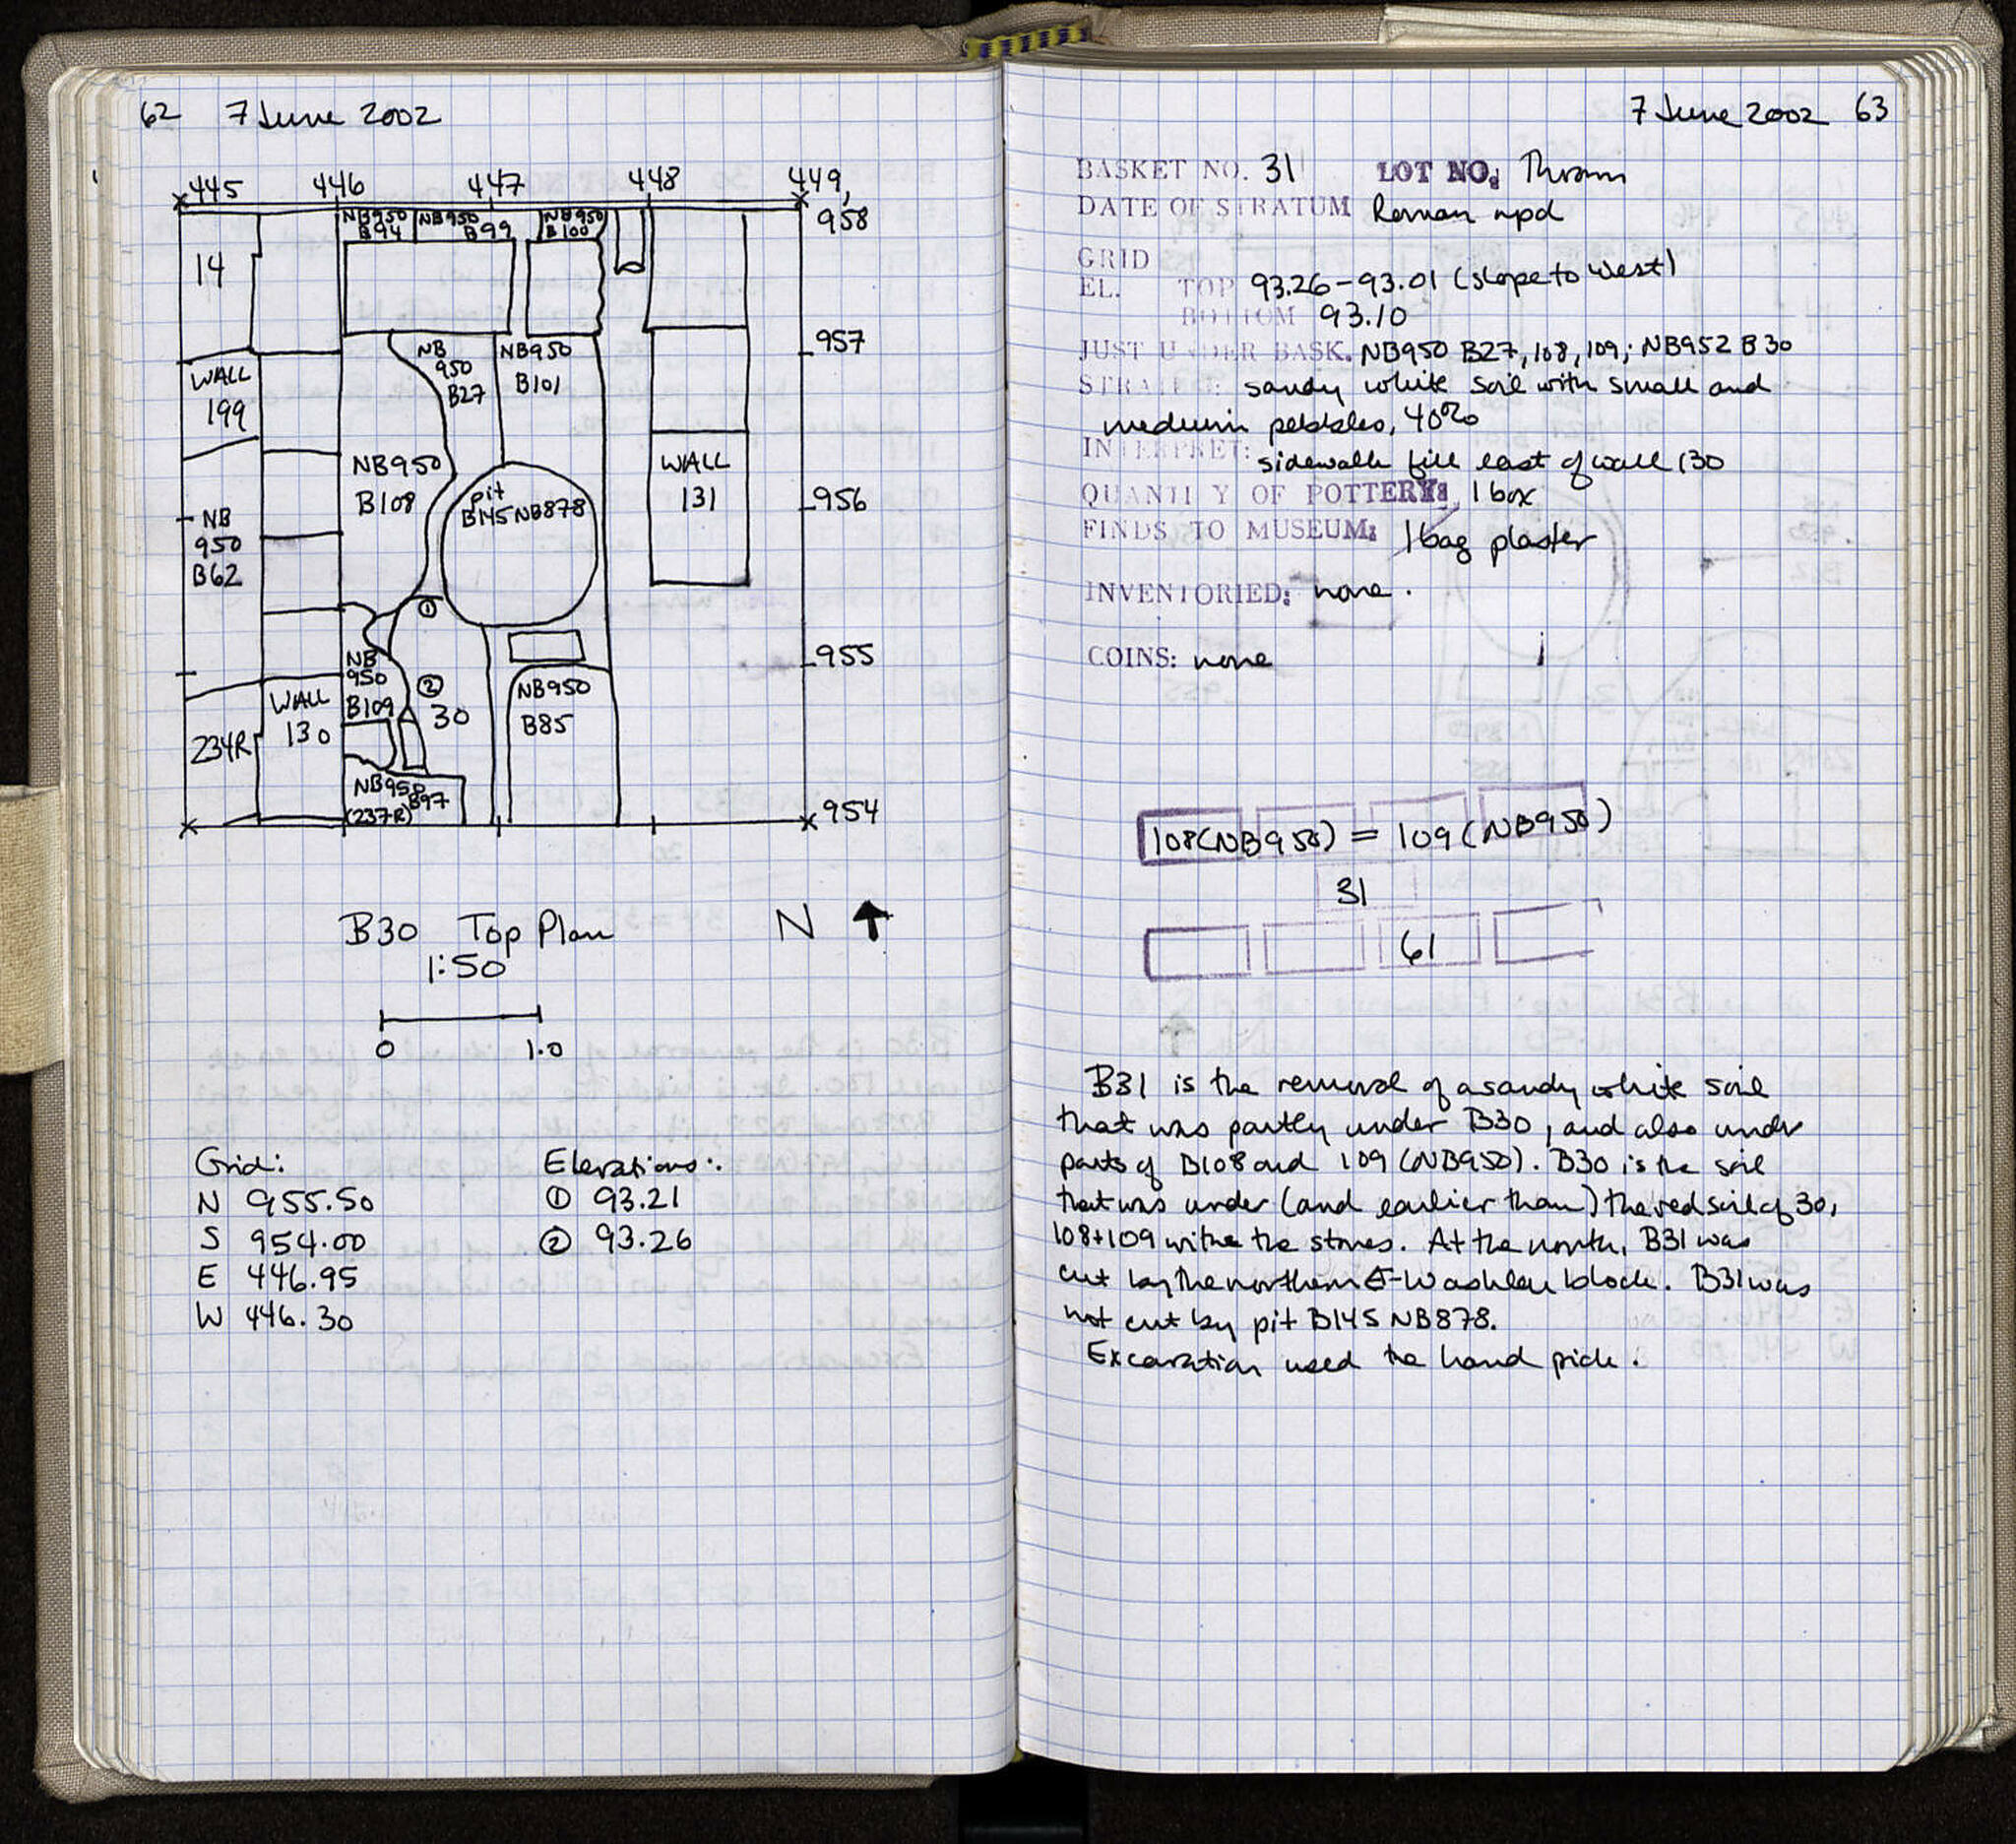 62 7 June 2002
445 446 447 448 449,
958
NB950 B94
NB950 B99
NB950 B100
14
957
WALL 199
NB 950 B27
NB950 B101
NB950 B108
WALL 131
pit B145 NB878
956
NB 950 B62
①
955
NB 950 B109
②
30
NB950 B85
WALL 130
234R
NB950 B97 (237R)
954
B30 Top Plan
1:50
N
0 1.0
Grid:
N 955.50
S 954.00
E 446.95
W 446.30
Elevations:
① 93.21
② 93.26
7 June 2002 63
BASKET NO. 31 LOT NO: Thrown
DATE OF STRATUM Roman npd
GRID
EL. TOP 93.26-93.01 (slope to west)
BOTTOM 93.10
JUST UNDER BASK. NB950 B27, 108, 109; NB952 B30
STRATUM: sandy white soil with small and
medium pebbles, 40%
INTERPRET: sidewalk fill east of wall 130
QUANTITY OF POTTERY: 1 box
FINDS TO MUSEUM: 1 bag plaster
INVENTORIED: none.
COINS: none
108(NB950) = 109(NB950)
31
61
B31 is the removal of a sandy white soil
that was partly under B30, and also under
parts of B108 and 109 (NB950). B30 is the soil
that was under (and earlier than) the red soil of 30,
108+109 withe the stones. At the north, B31 was
cut by the northern E-W ashlar block. B31 was
not cut by pit B145 NB878.
Excavation used the hand pick.